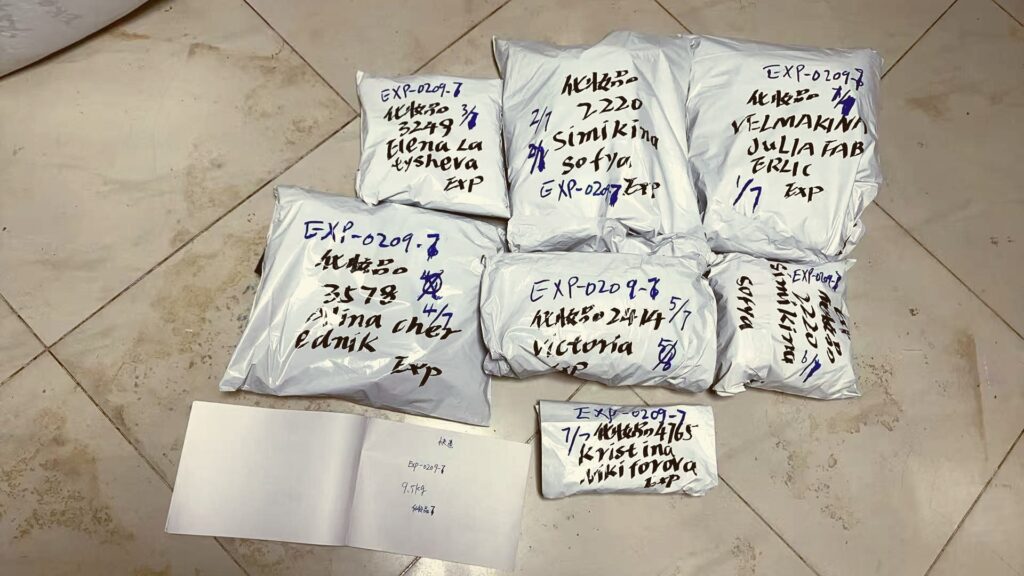 EXP-0209-7
化妆品 3/7
3249
Elena La
tysheva
Exp
化妆品
2/7 2220
Simikina
Sofya
EXP-0209 Exp
EXP-0209-7
化妆品
VELMAKINA
JULIA FAB
ERLIC
1/7 Exp
EXP-0209-7
化妆品
3578
4/7
Alina cher
ednik
Exp
EXP-0209-7
化妆品2414 5/7
Victoria
Exp
EXP-0209-7
化妆品
2220
Simikina
Sofya
EXP-0209-7
7/7 化妆品4765
Kristina
Nikiforova
Exp
快递
Exp-0209-7
9.5kg
化妆品